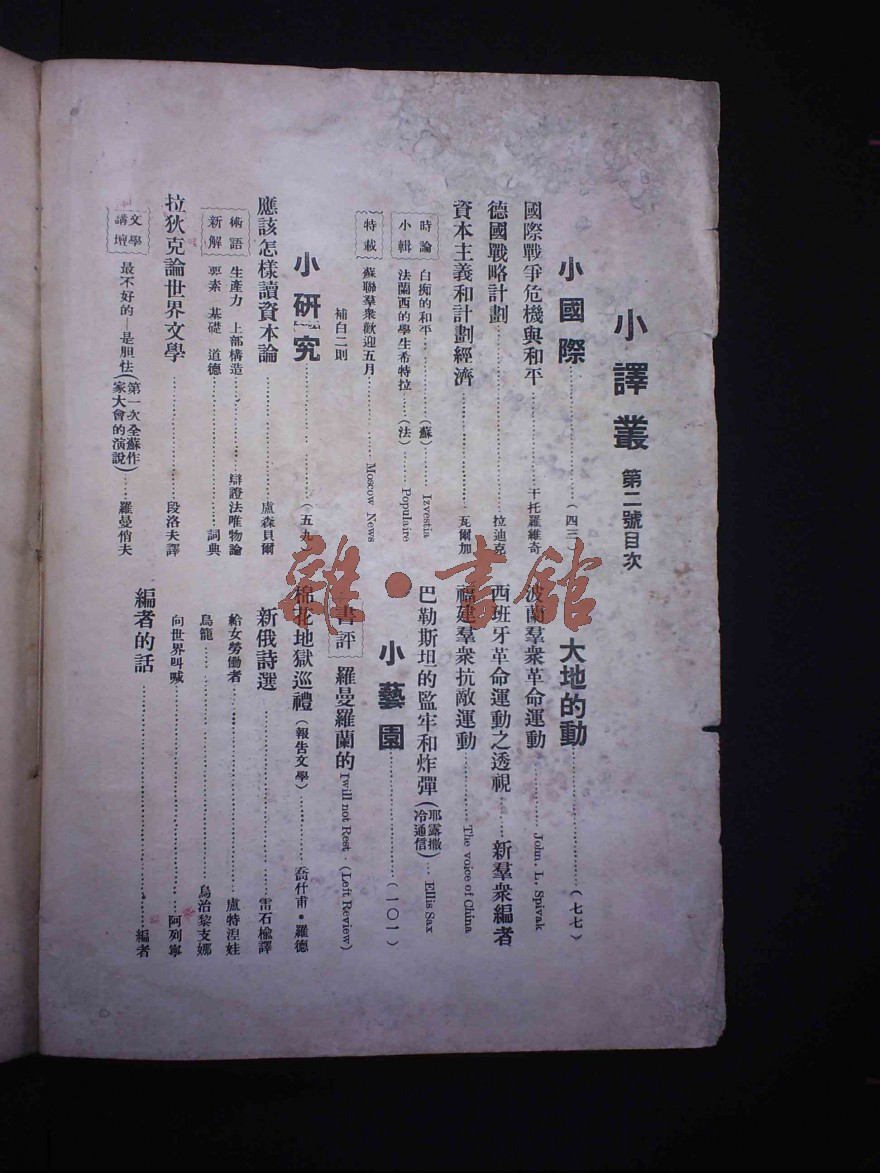 小譯叢 第二號目次
小國際……(四三)
國際戰爭危機與和平……干托羅維奇
德國戰略計劃……拉迪克
資本主義和計劃經濟……瓦爾加
時論小輯
白痴的和平……(蘇)……Izvestia
法蘭西的學生希特拉……(法)……Populaire
特載 蘇聯羣衆歡迎五月……Moscow News
補白二則
小研究……(五九)
應該怎樣讀資本論……盧森貝爾
術語新解
生產力 上部構造……辯證法唯物論
要素 基礎 道德……詞典
拉狄克論世界文學……段洛夫譯
文學講壇 最不好的—是胆怯(第一次全蘇作家大會的演說)……羅曼悄夫
大地的動……(七七)
波蘭羣衆革命運動……John. L. Spivak
西班牙革命運動之透視……新羣衆編者
福建羣衆抗敵運動……The voice of China
巴勒斯坦的監牢和炸彈(耶露撒冷通信)…Ellis Sax
小藝園……(一〇一)
書評 羅曼羅蘭的 I will not Rest.(Left Review)
棉花地獄巡禮(報告文學)……喬什甫·羅德
新俄詩選……雷石榆譯
給女勞働者……盧特涅娃
烏龍……烏治黎支娜
向世界叫喊……阿列寧
編者的話……編者
雜·書館